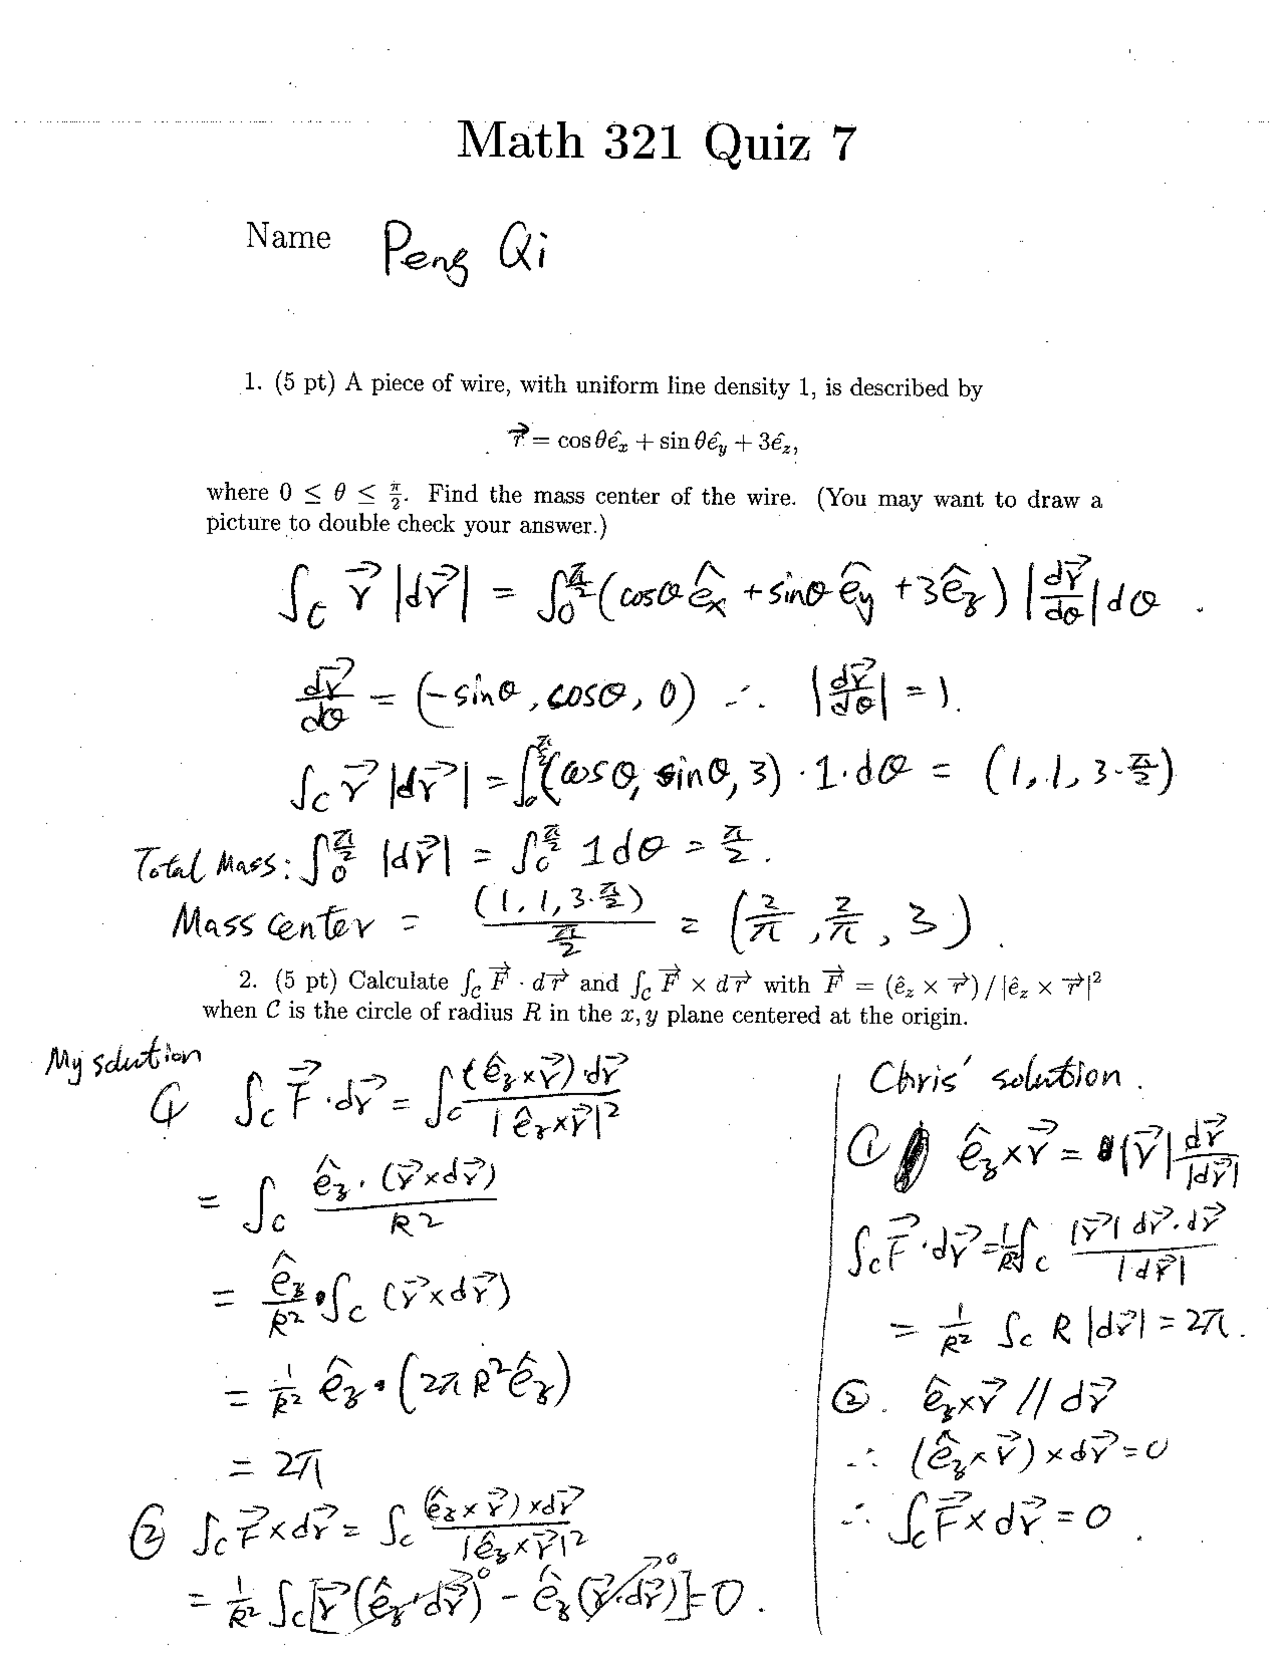 Math 321 Quiz 7
Name Peng Qi
1. (5 pt) A piece of wire, with uniform line density 1, is described by
r⃗ = cos θê_x + sin θê_y + 3ê_z,
where 0 ≤ θ ≤ π/2. Find the mass center of the wire. (You may want to draw a
picture to double check your answer.)
∫_C r⃗ |dr⃗| = ∫_0^{π/2} (cosθ ê_x + sinθ ê_y + 3ê_z) |dr⃗/dθ| dθ.
dr⃗/dθ = (-sinθ, cosθ, 0) ∴ |dr⃗/dθ| = 1.
∫_C r⃗ |dr⃗| = ∫_0^{π/2} (cosθ, sinθ, 3) · 1 · dθ = (1, 1, 3·π/2)
Total Mass: ∫_0^{π/2} |dr⃗| = ∫_0^{π/2} 1 dθ = π/2.
Mass center = (1, 1, 3·π/2) / (π/2) = (2/π, 2/π, 3).
2. (5 pt) Calculate ∫_C F⃗ · dr⃗ and ∫_C F⃗ × dr⃗ with F⃗ = (ê_z × r⃗) / |ê_z × r⃗|²
when C is the circle of radius R in the x, y plane centered at the origin.
My solution
① ∫_C F⃗ · dr⃗ = ∫_C (ê_z × r⃗) · dr⃗ / |ê_z × r⃗|²
= ∫_C ê_z · (r⃗ × dr⃗) / R²
= ê_z/R² · ∫_C (r⃗ × dr⃗)
= 1/R² ê_z · (2πR² ê_z)
= 2π
② ∫_C F⃗ × dr⃗ = ∫_C (ê_z × r⃗) × dr⃗ / |ê_z × r⃗|²
= 1/R² ∫_C [r⃗ (ê_z · dr⃗)⁰ - ê_z (r⃗ · dr⃗)⁰] = 0.
Chris' solution.
① ê_z × r⃗ = |r⃗| dr⃗/|dr⃗|
∫_C F⃗ · dr⃗ = 1/R² ∫_C |r⃗| dr⃗ · dr⃗ / |dr⃗|
= 1/R² ∫_C R |dr⃗| = 2π.
②. ê_z × r⃗ // dr⃗
∴ (ê_z × r⃗) × dr⃗ = 0
∴ ∫_C F⃗ × dr⃗ = 0.